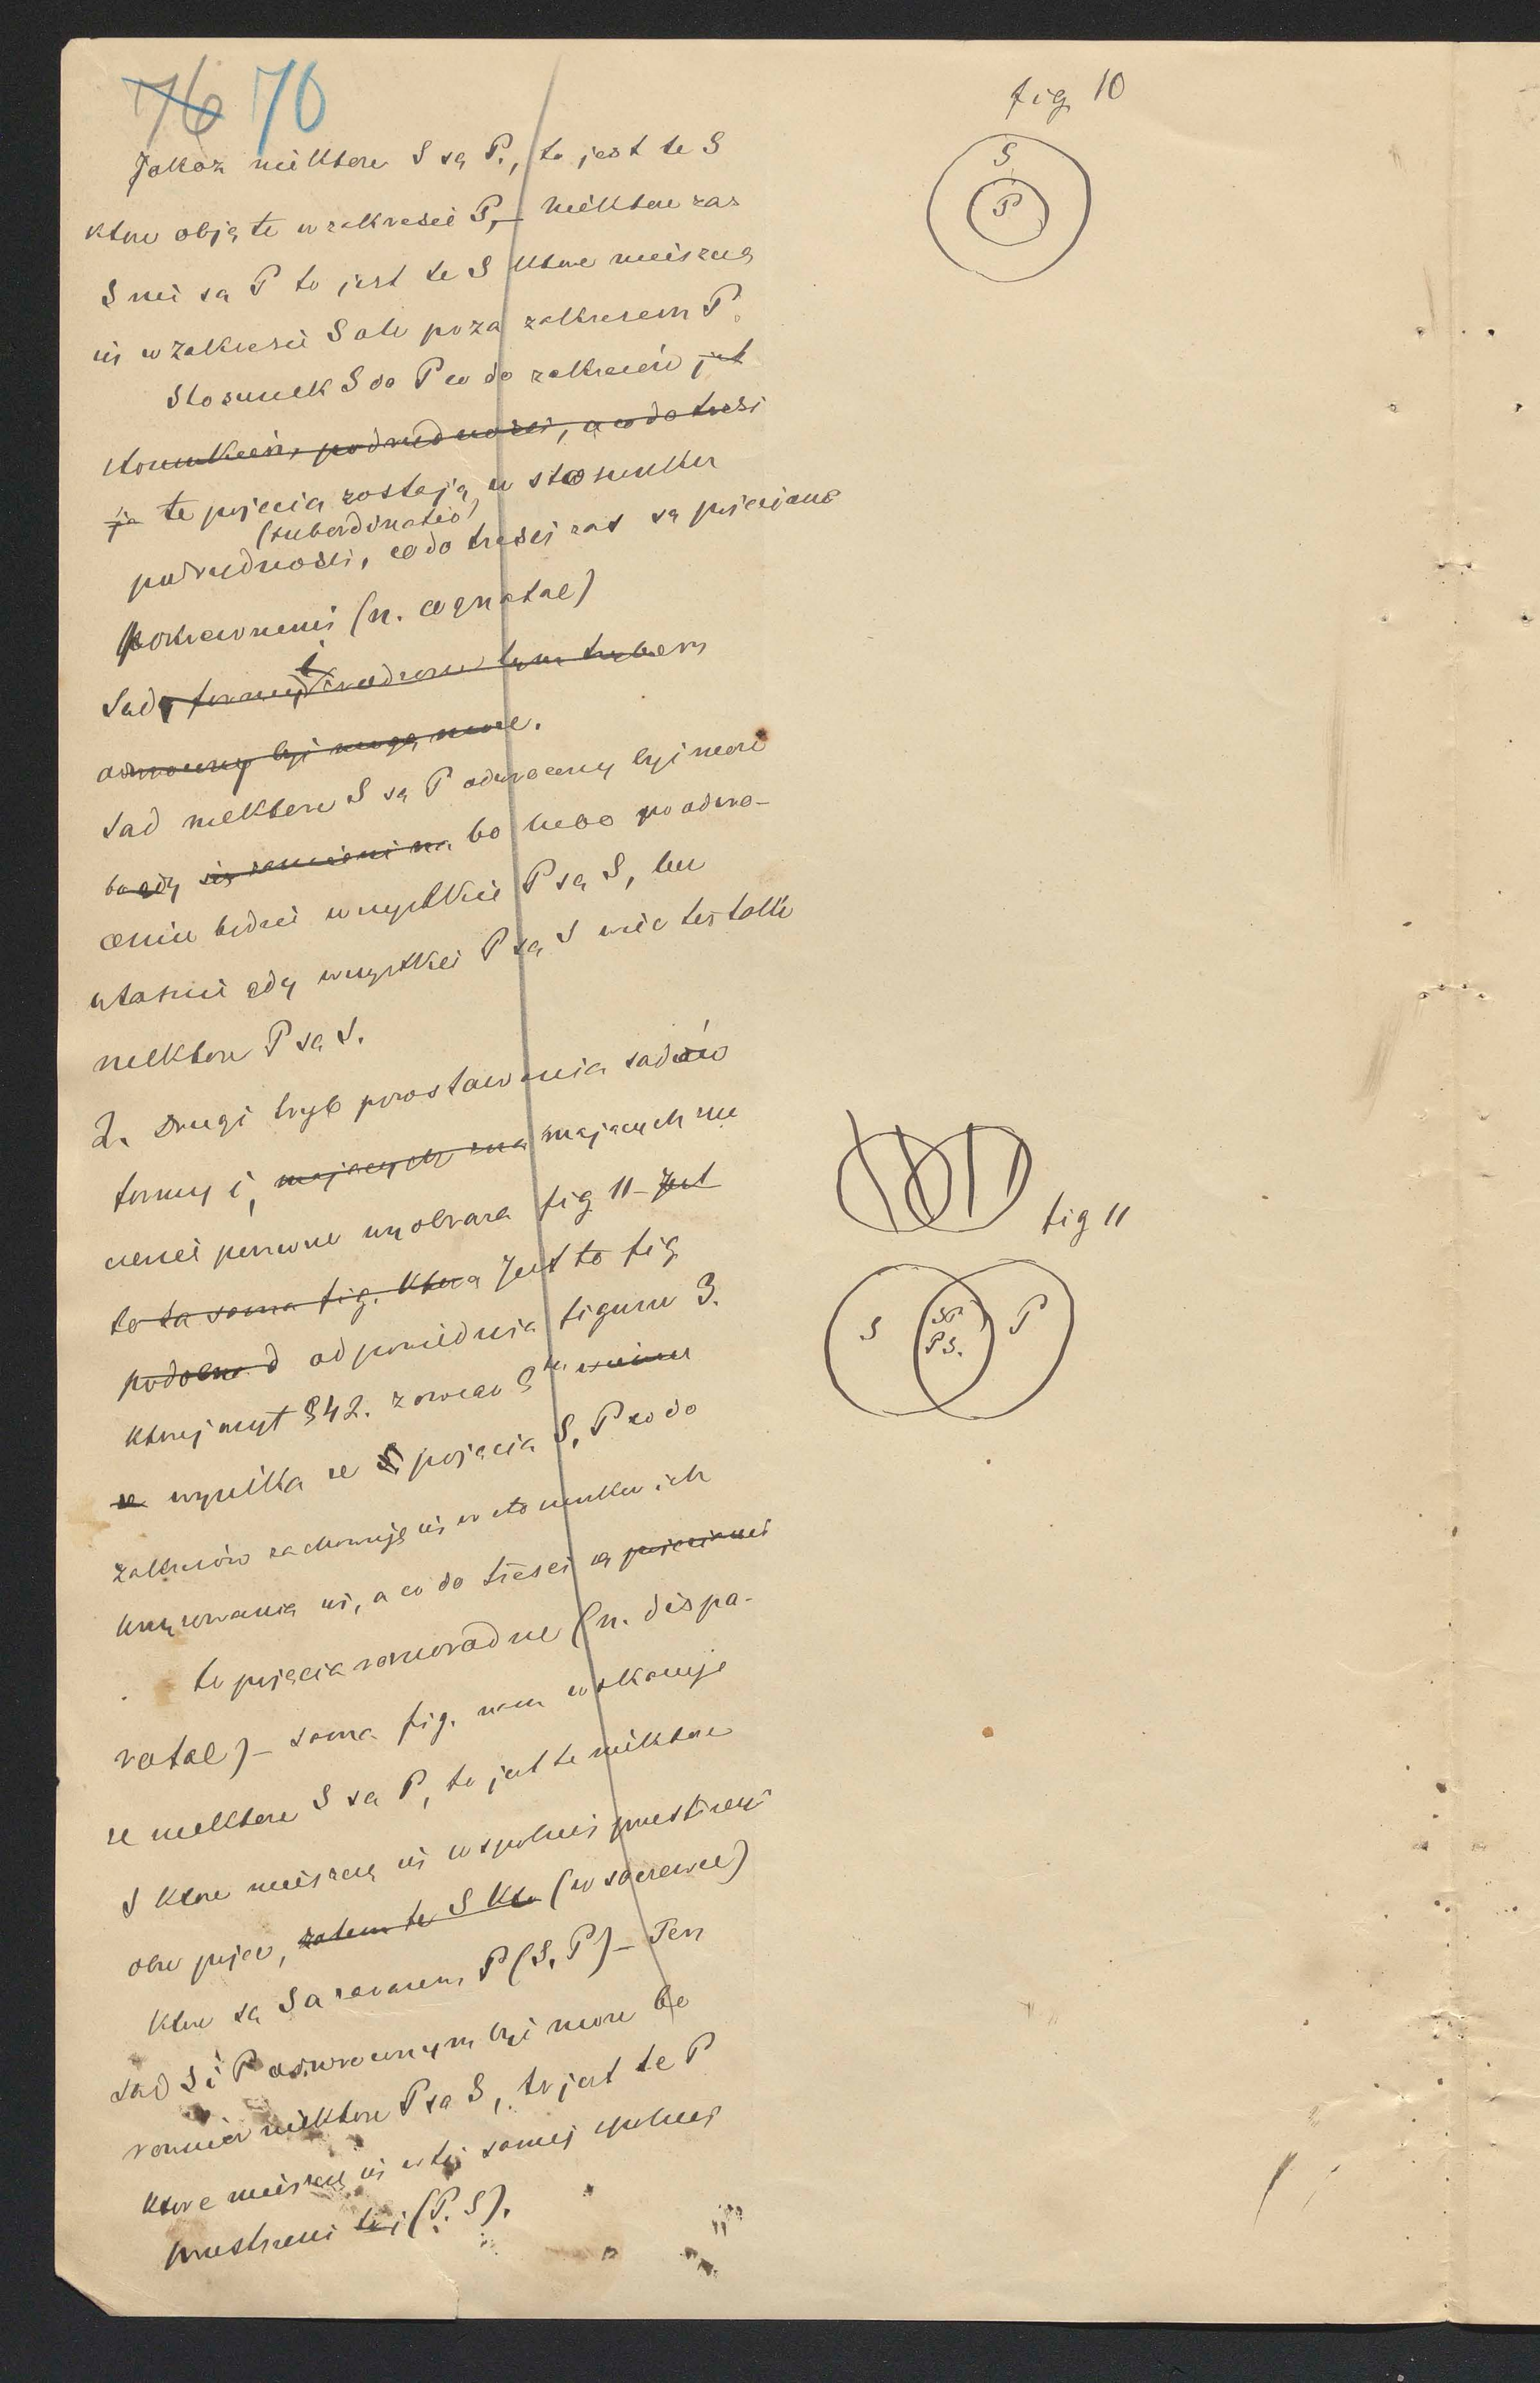 76 70
Jakoż niektore S są P., to jest te S
ktore objęte w zakresie P, – niektore zas
S nie sa P to jest te S ktore miesczą
się w zakresie S ale poza zakresem P.
Stosunek S do P co do zakresów jest
stosunkiem podrzednosci, a co do tresci
ja te pojęcia zostają w stosunku
(subordinatio)
podrzędnosci, co do tresci zas są pojeciami
pokrewnemi (n. cognatae)
Sady formy i w tym trybem
odwrocony byc moze.
Sad niektore S są P odwrocony byc może
bo gdy się zamieni na bo lubo po odwro-
ceniu bedzie wszystkie P są S, lecz
własnie gdy wszystkie P sa S więc też takze
niektore P sa S.
2. Drugi tryb powstawania sadów
formy i, majacych zna majacych zna
czenie pewne wyobraza fig 11 – Jest
to ta sama fig. ktora Jest to fig
podobna d odpowiednia figurze 3.
ktorej myt § 42. z owego §u
ze wynika ze S pojęcia S, P co do
zakresów zachowuję się w stosunku ich
krzyzowania się, a co do tresci są pojeciami
te pojęcia roznorodne (n. dispa-
ratae) – sama fig. nam wskazuje
ze niektore S sa P, to jest te niektore
S ktore miesczą się w spolnej przestrzeni
obu pojec, zatem te S kto (w soczewce)
ktore sa S a zarazem P (S, P) – Ten
sad S i P odwroconym byc moze bo
rownież niektore P sa S, to jest te P
ktore miesczą się w tej samej spolnej
przestrzeni tej (P. S).
fig 10
S
P
fig 11
S
SP
PS.
P